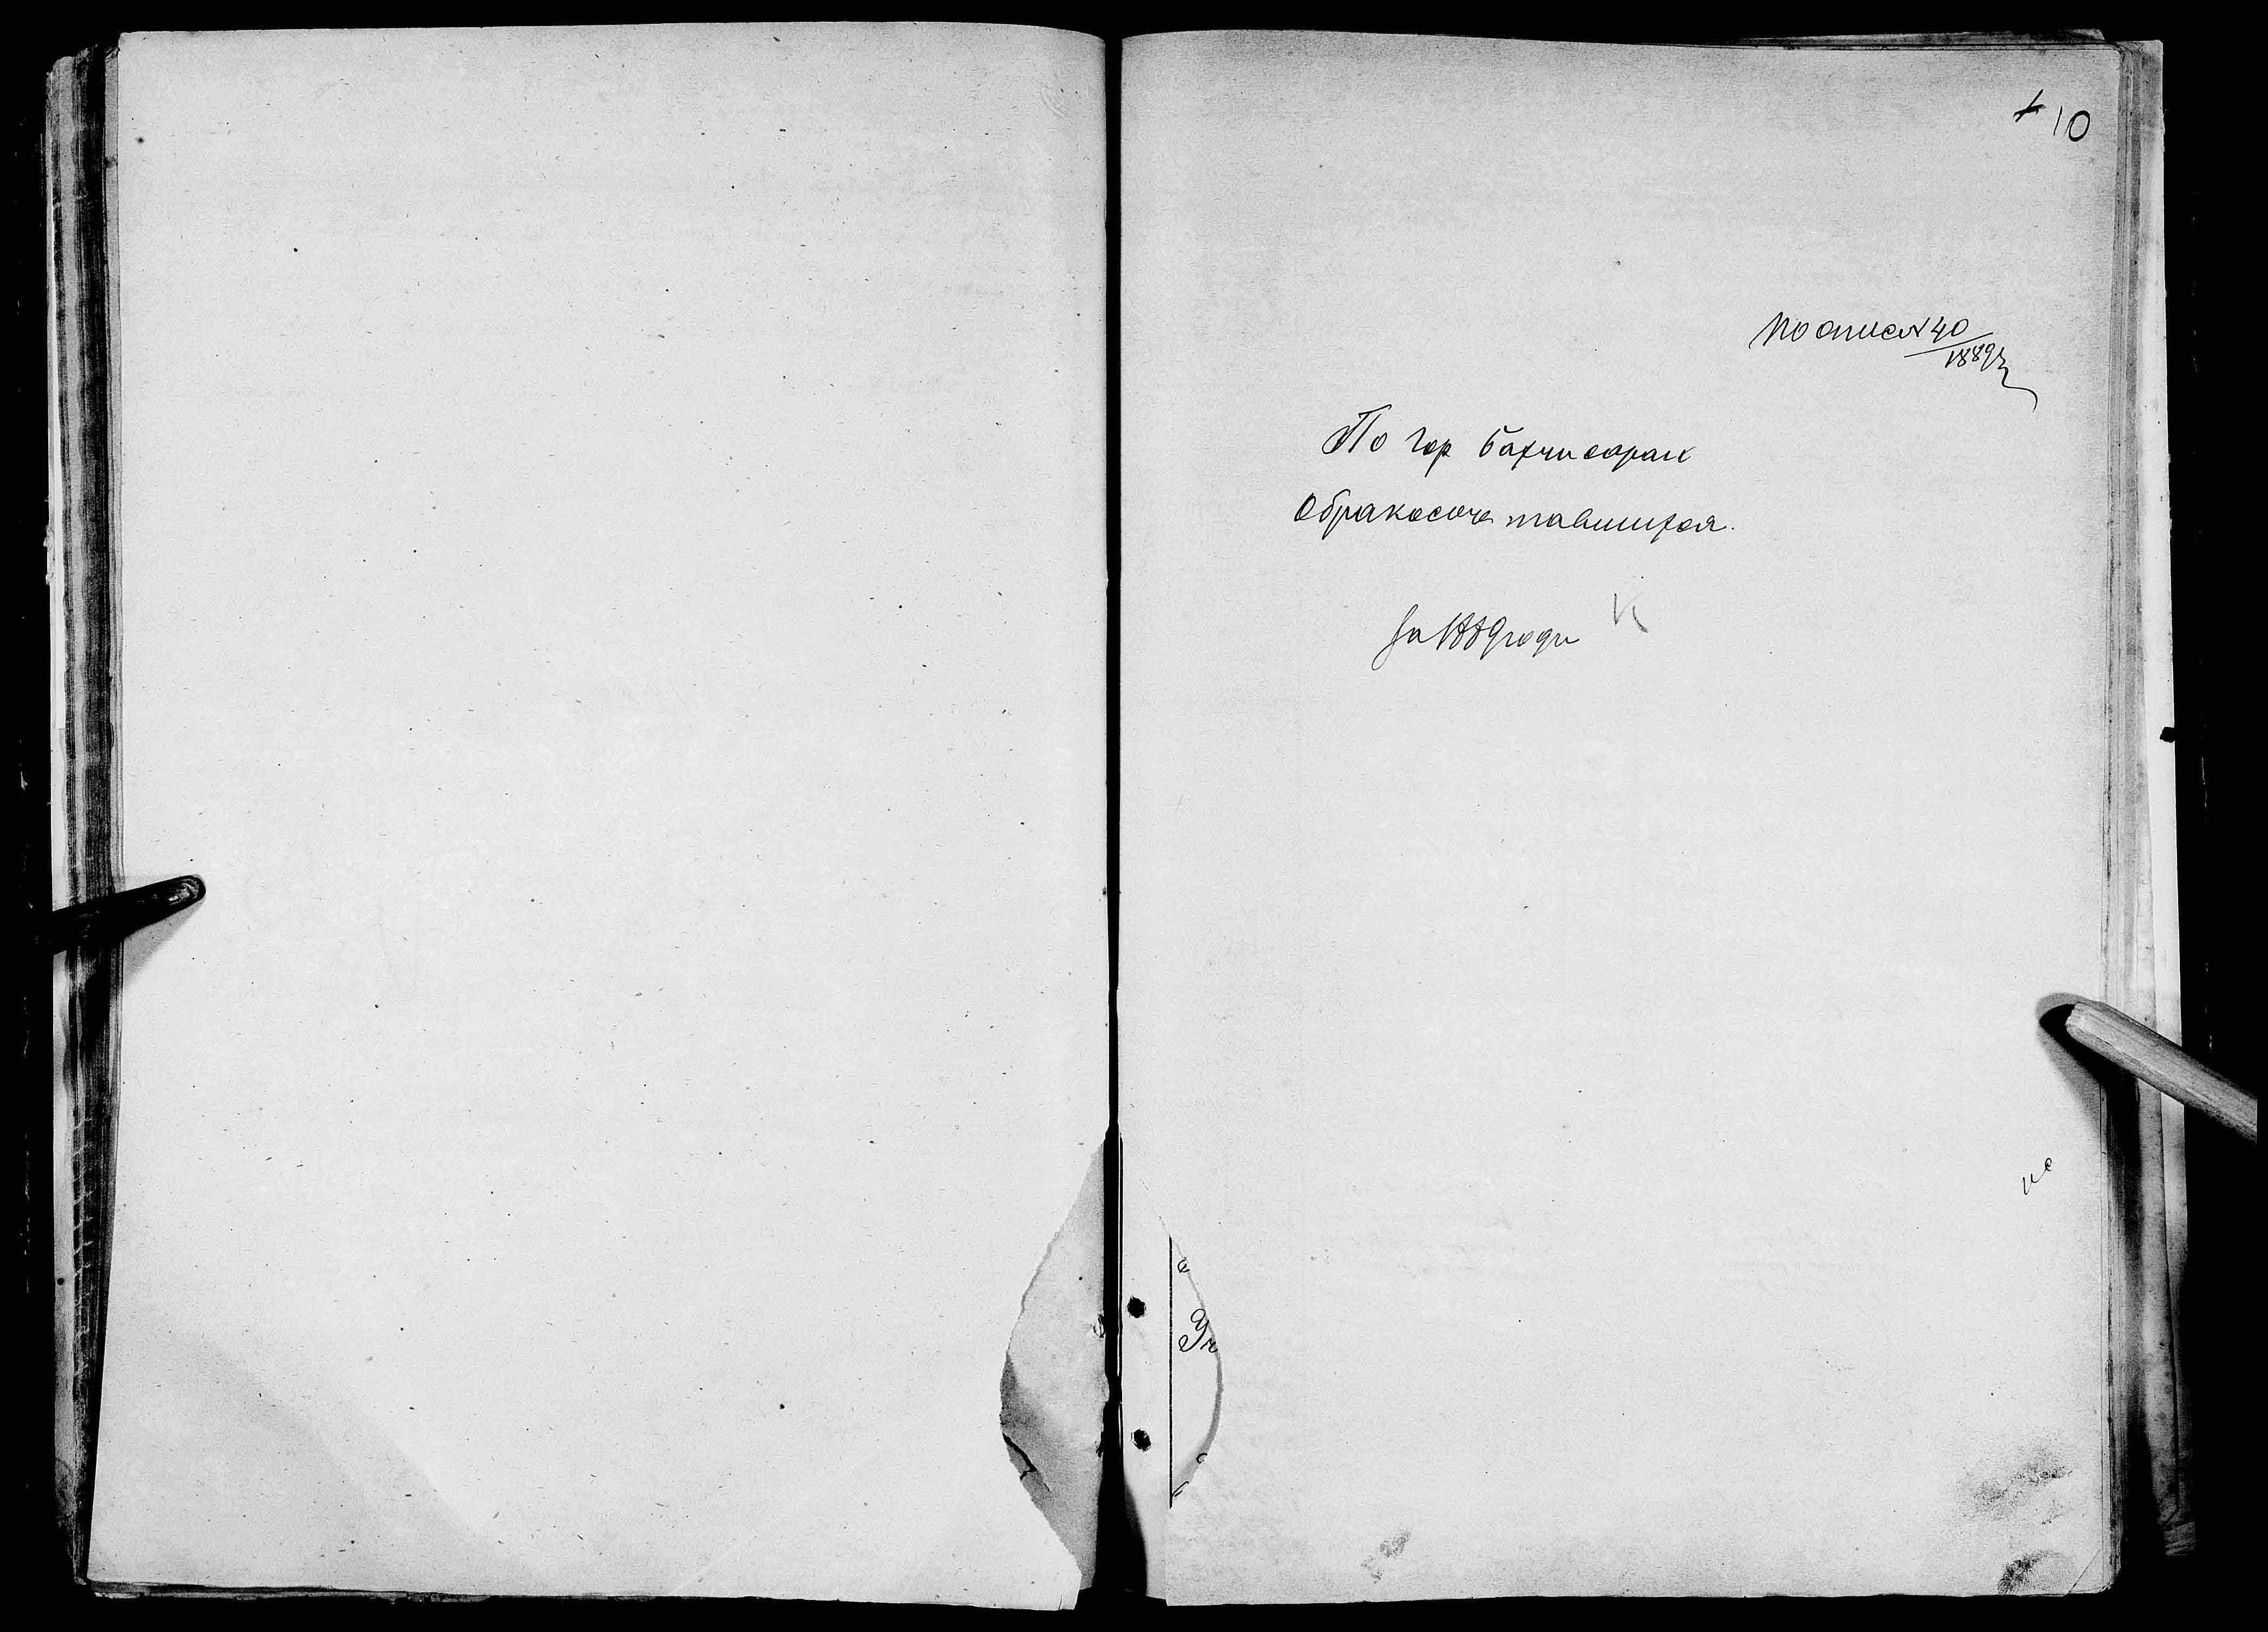 10
По описи 40
1889г
По гор Бахчисараи
О бракосочетавшихся.
За 1889 годъ
Уч